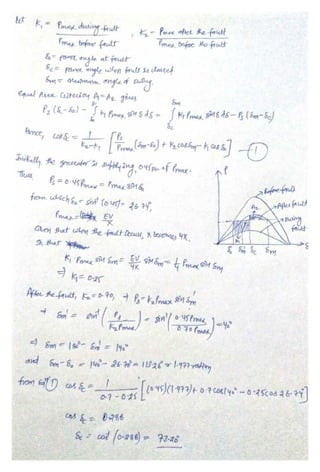 Let K₁ = Pmax during fault / Pmax before fault , K₂ - Pmax after the fault / Pmax before the fault
δ₀ = power angle at fault
δc = power angle when fault is cleared
δm = maximum angle of swing
Equal Area Criterion A₁ = A₂ gives
Ps (δc - δ₀) - ∫ K₁ Pmax sin δ dδ = ∫ K₂ Pmax sin δ dδ - Ps (δm - δc)
Hence, cos δc = 1 / (K₂ - K₁) [ Ps / Pmax (δm - δ₀) + K₂ cos δm - K₁ cos δ₀ ] — ①
Initially the generator is supplying 0.45 of Pmax.
Thus
Ps = 0.45 Pmax = Pmax sin δ₀
from which δ₀ = sin⁻¹ (0.45) = 26.74°,
Pmax = EV / X
Given that when the fault occurs, X becomes 4X,
So that
K₁ Pmax sin δm = EV / 4X sin δm = 1/4 Pmax sin δm
⇒ K₁ = 0.25
After the fault, K₂ = 0.70, + Ps = K₂ Pmax sin δm'
⇒ δm' = sin⁻¹ ( Ps / K₂ Pmax ) = sin⁻¹ ( 0.45 Pmax / 0.70 Pmax ) = 40°
⇒ δm = 180° - δm' = 140°
and δm - δ₀ = 140° - 26.74° = 113.26 or 1.977 radian
from eqⁿ ① cos δc = 1 / (0.7 - 0.25) [ (0.45)(1.977) + 0.7 cos 140° - 0.25 cos 26.74° ]
cos δc = 0.288
δc = cos⁻¹ (0.288) = 73.26
P
Before fault
After fault
During fault
A₂
A₁
δ₀ δc δm
δ